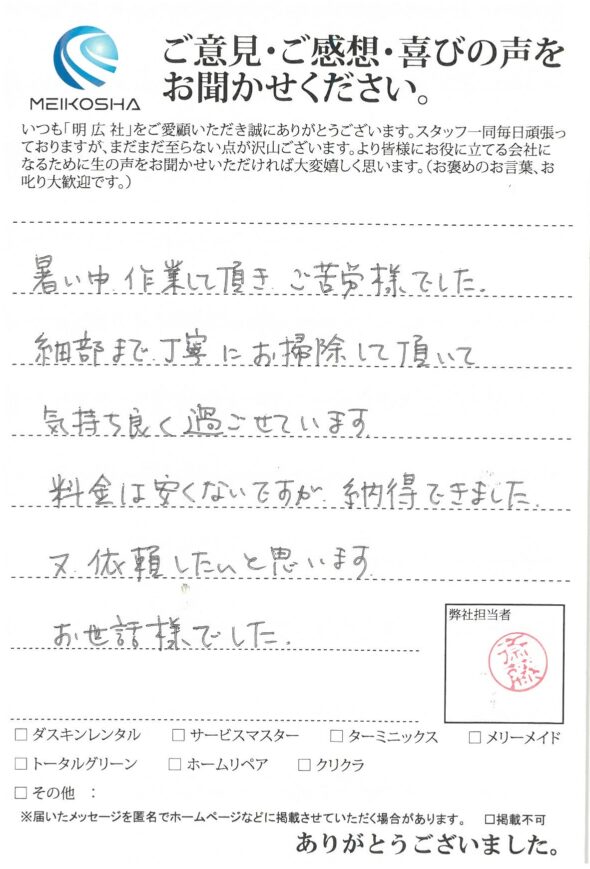 MEIKOSHA
ご意見・ご感想・喜びの声を
お聞かせください。
いつも「明広社」をご愛顧いただき誠にありがとうございます。スタッフ一同毎日頑張っ
ておりますが、まだまだ至らない点が沢山ございます。より皆様にお役に立てる会社に
なるために生の声をお聞かせいただければ大変嬉しく思います。（お褒めのお言葉、お
叱り大歓迎です。）
暑い中 作業して頂き ご苦労様でした。
細部まで丁寧にお掃除して頂いて
気持ち良く過ごせています
料金は安くないですが 納得できました
又 依頼したいと思います
お世話様でした。
弊社担当者
□ ダスキンレンタル □ サービスマスター □ ターミニックス □ メリーメイド
□ トータルグリーン □ ホームリペア □ クリクラ
□ その他 ：
※届いたメッセージを匿名でホームページなどに掲載させていただく場合があります。 □掲載不可
ありがとうございました。